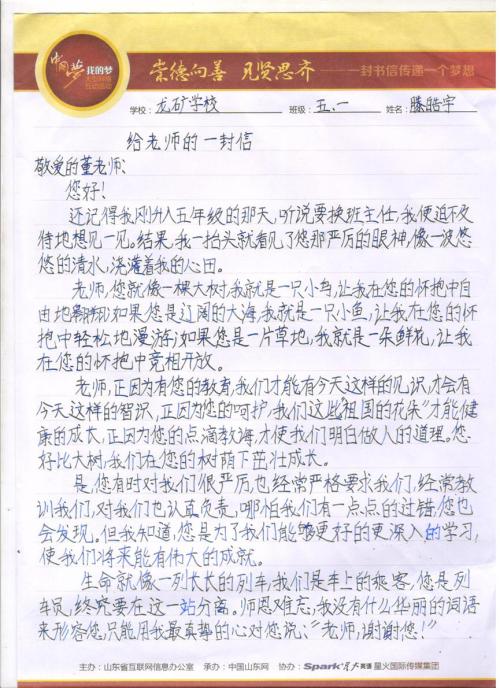 中国梦 我的梦
大型网络
互动活动
崇德向善 见贤思齐 一封书信传递一个梦想
学校：龙矿学校 班级：五.一 姓名：滕皓宇
给老师的一封信
敬爱的董老师：
您好！
还记得我刚升入五年级的那天，听说要换班主任，我便迫不及
待地想见一见。结果，我一抬头就看见了您那严厉的眼神，像一波悠
悠的清水，浇灌着我的心田。
老师，您就像一棵大树，我就是一只小鸟，让我在您的怀抱中自
由地翱翔；如果您是辽阔的大海，我就是一只小鱼，让我在您的怀
抱中轻松地漫游；如果您是一片草地，我就是一朵鲜花，让我
在您的怀抱中竞相开放。
老师，正因为有您的教育，我们才能有今天这样的见识，才会有
今天这样的智识，正因为您的呵护，我们这些“祖国的花朵”才能健
康的成长，正因为您的点滴教诲，才使我们明白做人的道理。您
好比大树，我们在您的树荫下茁壮成长。
是，您有时对我们很严厉，也经常严格要求我们，经常教
训我们，对我们也认真负责，哪怕我们有一点点的过错，您也
会发现。但我知道，您是为了我们能够更好的更深入的学习，
使我们将来能有伟大的成就。
生命就像一列长长的列车，我们是车上的乘客，您是列
车员，终究要在这一站分离。师恩难忘，我没有什么华丽的词语
来形容您，只能用我最真挚的心对您说：“老师，谢谢您！”
主办：山东省互联网信息办公室 承办：中国山东网 协办：Spark星火英语 星火国际传媒集团